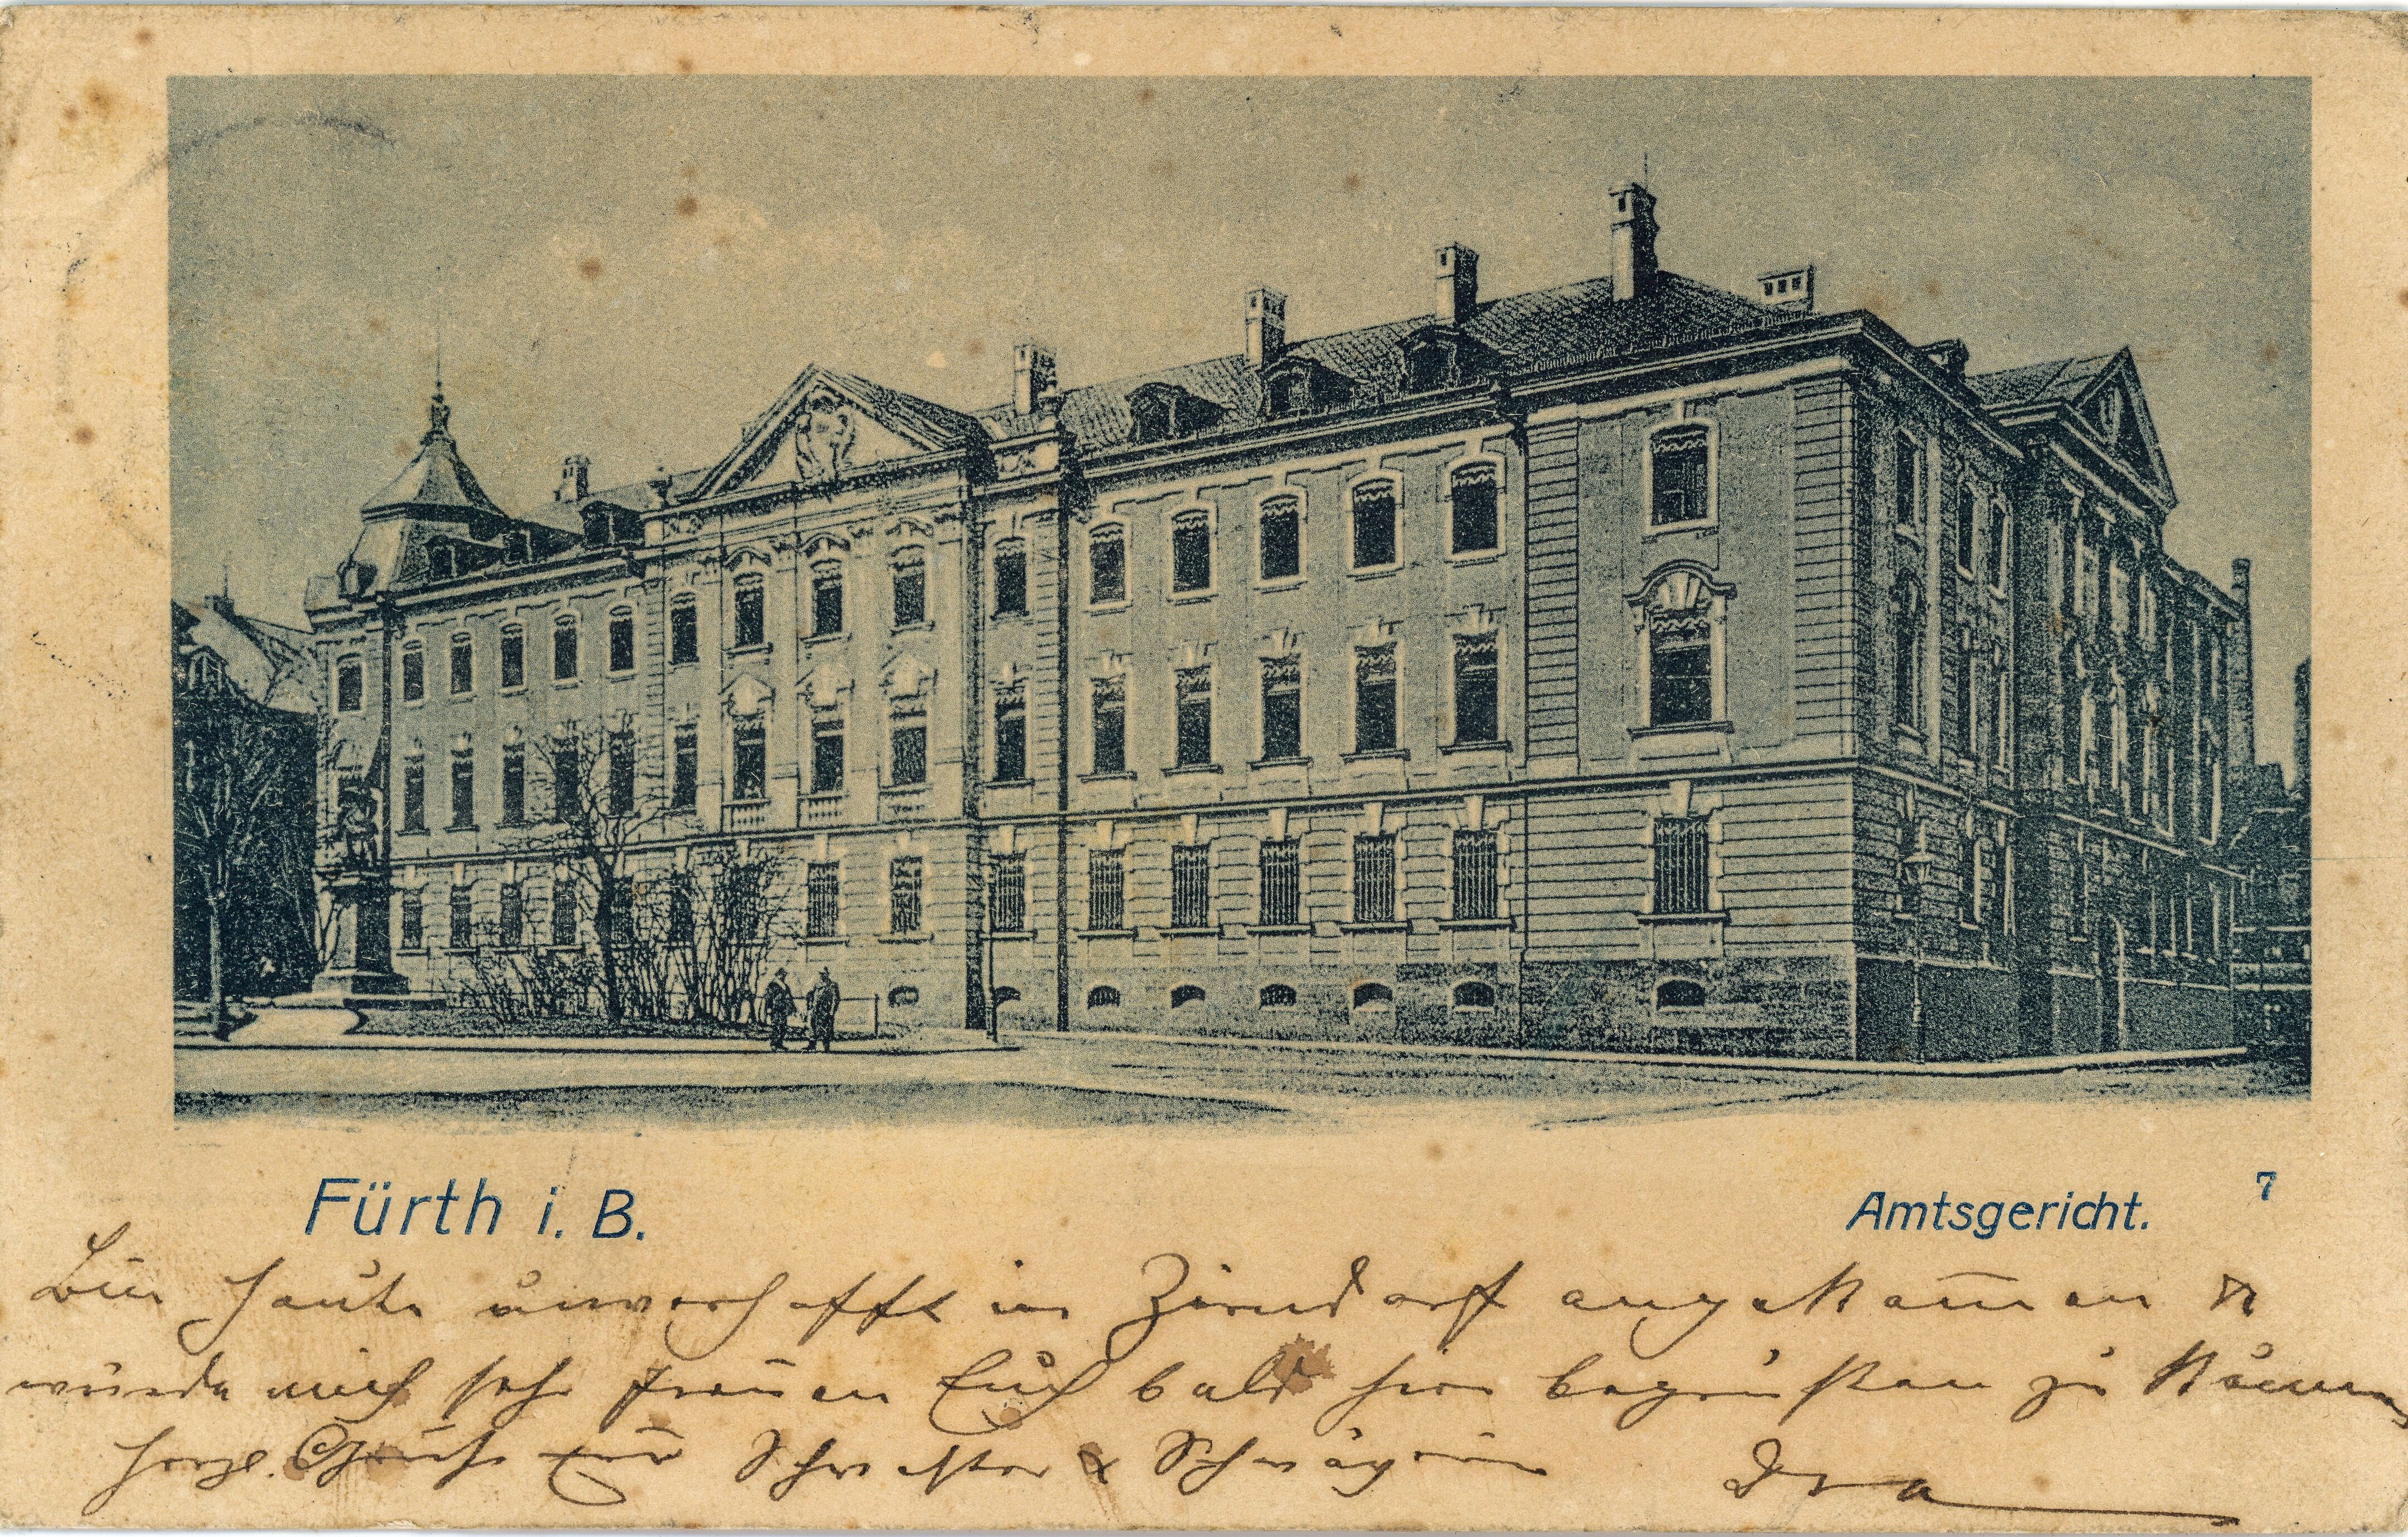 Fürth i. B.
Amtsgericht.
7
Bin heute unverhofft in Zirndorf angekom̄en &
würde mich sehr freuen Euch bald hier begrüßen zu
herzl. Grüße Schwester & Schwägerin